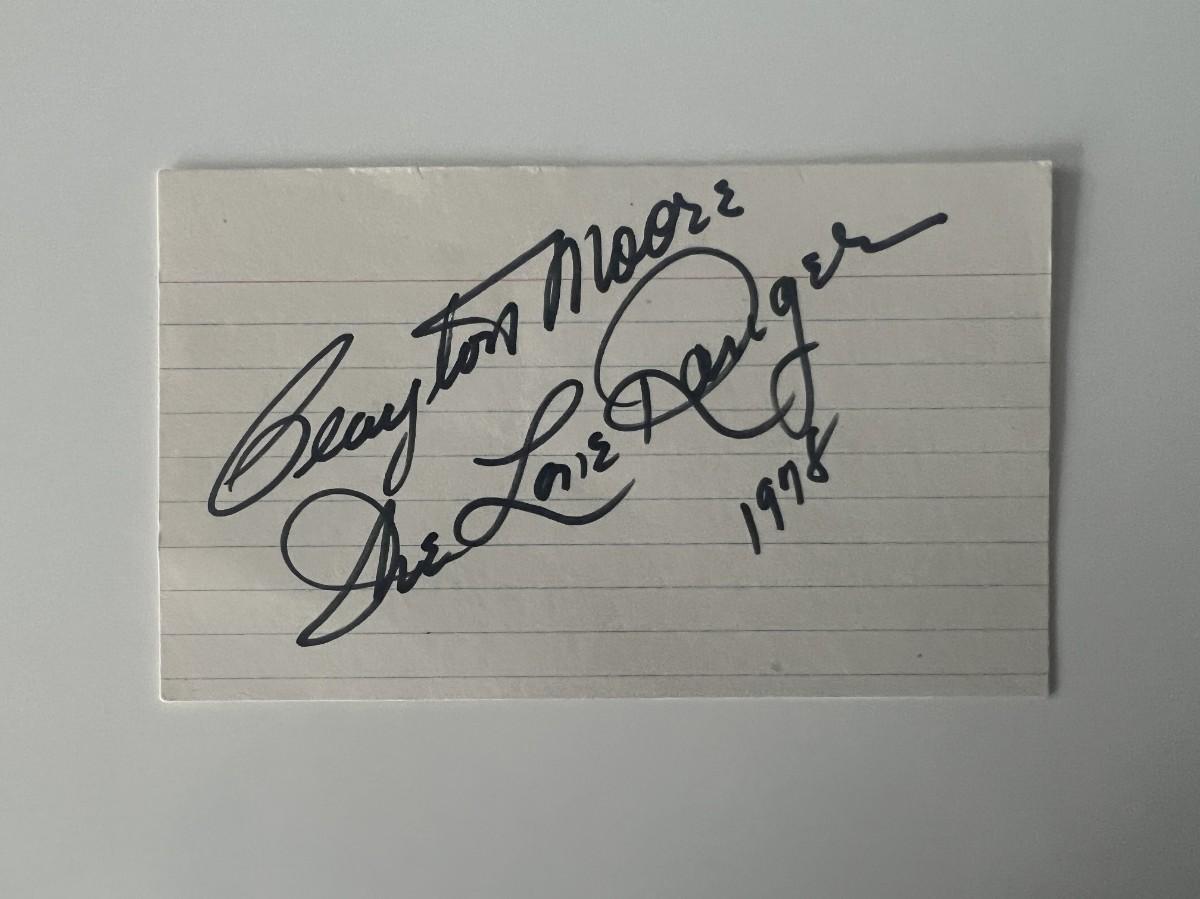 Clayton Moore
The Lone Ranger
1978